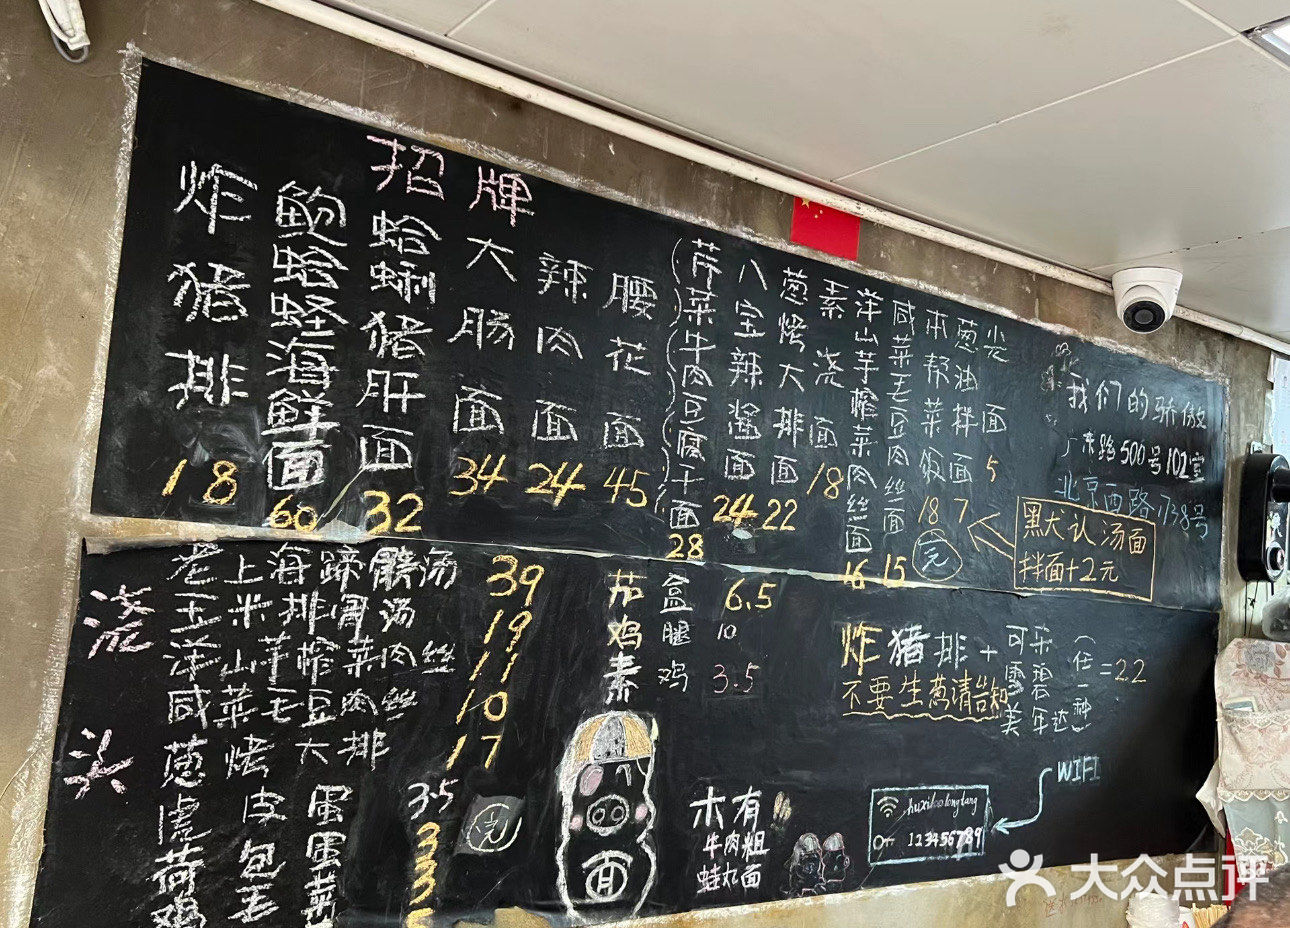 招牌
炸猪排 18
鲍蛤蛏海鲜面 60
蛤蜊猪肝面 32
大肠面 34
辣肉面 24
腰花面 45
芹菜牛肉豆腐干面 28
八宝辣酱面 24
葱烤大排面 22
素浇面 18
洋山芋榨菜肉丝面 16
咸菜毛豆肉丝面 15
本帮菜饭 18元
葱油拌面 7
光面 5
黑犬认汤面
拌面+2元
我们的骄傲
广东路500号102室
北京西路1738号
浇头
老上海蹄髈汤 39
玉米排骨汤 19
洋山芋榨菜肉丝 11
咸菜毛豆肉丝 10
葱烤大排 17
虎皮蛋 3.5
荷包蛋 3
鸡毛菜 3
浇
茄盒 6.5
鸡腿 10
素鸡 3.5
炸猪排+可乐 雪碧 美年达(任一种)=22
不要生葱请告知
面
木有
牛肉粗
蛙丸面
WIFI
huxilaolongtang
123456789
大众点评